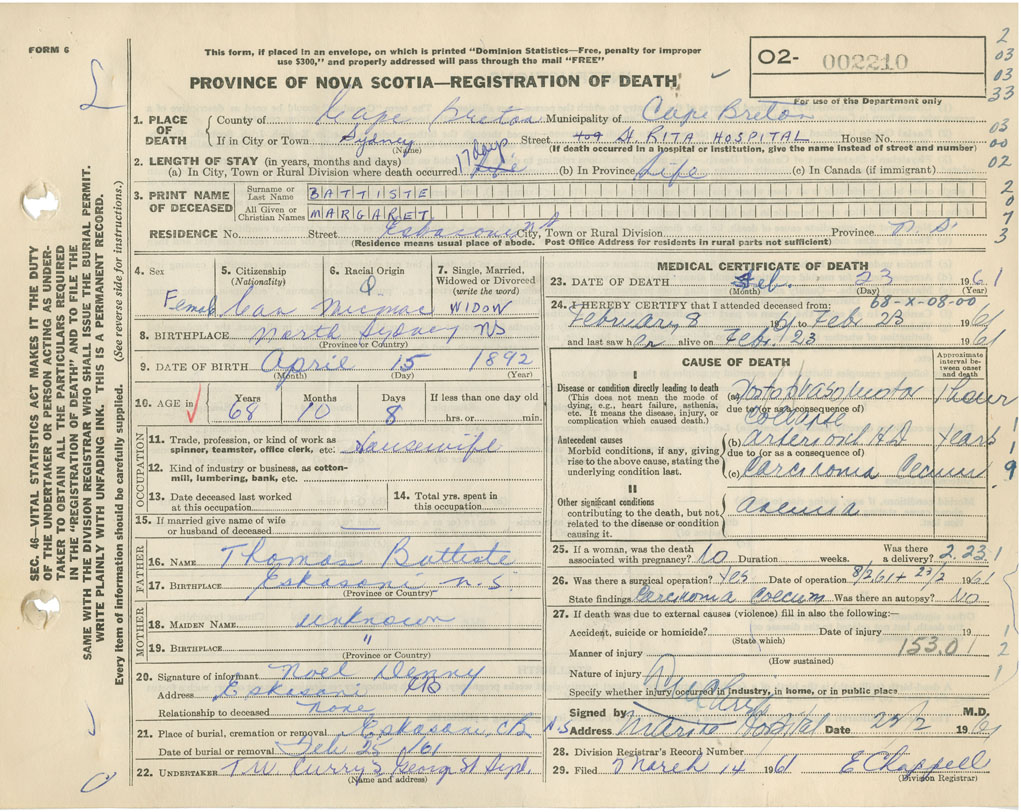 FORM 6
This form, if placed in an envelope, on which is printed "Dominion Statistics—Free, penalty for improper
use $300," and properly addressed will pass through the mail "FREE"
PROVINCE OF NOVA SCOTIA—REGISTRATION OF DEATH
O2- 002210
For use of the Department only
2
03
03
33
03
00
02
2
0
7
3
SEC. 46—VITAL STATISTICS ACT MAKES IT THE DUTY
OF THE UNDERTAKER OR PERSON ACTING AS UNDER-
TAKER TO OBTAIN ALL THE PARTICULARS REQUIRED
IN THE "REGISTRATION OF DEATH" AND TO FILE THE
SAME WITH THE DIVISION REGISTRAR WHO SHALL ISSUE THE BURIAL PERMIT.
WRITE PLAINLY WITH UNFADING INK. THIS IS A PERMANENT RECORD.
Every item of information should be carefully supplied. (See reverse side for instructions.)
1. PLACE OF DEATH
County of Cape Breton Municipality of Cape Breton
If in City or Town Sydney Street St. RITA HOSPITAL House No.
(Name) (If death occurred in a hospital or institution, give the name instead of street and number)
2. LENGTH OF STAY (in years, months and days)
(a) In City, Town or Rural Division where death occurred 17 days Life (b) In Province Life (c) In Canada (if immigrant)
3. PRINT NAME OF DECEASED
Surname or Last Name BATTISTE
All Given or Christian Names MARGARET
RESIDENCE No. Street Eskasoni City, Town or Rural Division Province N.S.
(Residence means usual place of abode. Post Office Address for residents in rural parts not sufficient)
4. Sex Female
5. Citizenship (Nationality) Can
6. Racial Origin Micmac
7. Single, Married, Widowed or Divorced (write the word) WIDOW
8. BIRTHPLACE North Sydney NS
(Province or Country)
9. DATE OF BIRTH April 15 1892
(Month) (Day) (Year)
10. AGE in Years 68 Months 10 Days 8 If less than one day old hrs. or min.
OCCUPATION
11. Trade, profession, or kind of work as spinner, teamster, office clerk, etc. Housewife
12. Kind of industry or business, as cotton-mill, lumbering, bank, etc.
13. Date deceased last worked at this occupation
14. Total yrs. spent in this occupation
15. If married give name of wife or husband of deceased —
FATHER
16. NAME Thomas Battiste
17. BIRTHPLACE Eskasoni N.S.
(Province or Country)
MOTHER
18. MAIDEN NAME unknown
19. BIRTHPLACE "
(Province or Country)
20. Signature of informant Noel Denny
Address Eskasoni CB
Relationship to deceased None
21. Place of burial, cremation or removal Eskasoni CB
Date of burial or removal Feb 25 /61
22. UNDERTAKER T W Curry's George St Sydl.
(Name and address)
MEDICAL CERTIFICATE OF DEATH
23. DATE OF DEATH Feb. 23 1961
(Month) (Day) (Year)
68-X-08-00
24. I HEREBY CERTIFY that I attended deceased from:
February 8 1961 to Feb 23 1961
and last saw her alive on Feb. 23 1961
CAUSE OF DEATH
Approximate interval between onset and death
I
Disease or condition directly leading to death
(This does not mean the mode of dying, e.g., heart failure, asthenia, etc. It means the disease, injury, or complication which caused death.)
(a) 1 hour
due to (or as a consequence of)
collapse
Antecedent causes
Morbid conditions, if any, giving rise to the above cause, stating the underlying condition last.
(b) arterioscl H.D years
due to (or as a consequence of)
(c) Carcinoma Cecum
1
1
9
II
Other significant conditions
contributing to the death, but not related to the disease or condition causing it.
anemia
25. If a woman, was the death associated with pregnancy? No Duration weeks. Was there a delivery? 2.231
26. Was there a surgical operation? Yes Date of operation 8/2/61 + 23/2 1961
State findings Carcinoma Coecum Was there an autopsy? No
27. If death was due to external causes (violence) fill in also the following:—
Accident, suicide or homicide? Date of injury 19
(State which)
Manner of injury 153.0
(How sustained)
1
2
1
Nature of injury
Specify whether injury occurred in industry, in home, or in public place
Signed by M.D.
Address Hospital N.S Date 23/2 1961
28. Division Registrar's Record Number
29. Filed March 14 1961 E Chappell
(Division Registrar)